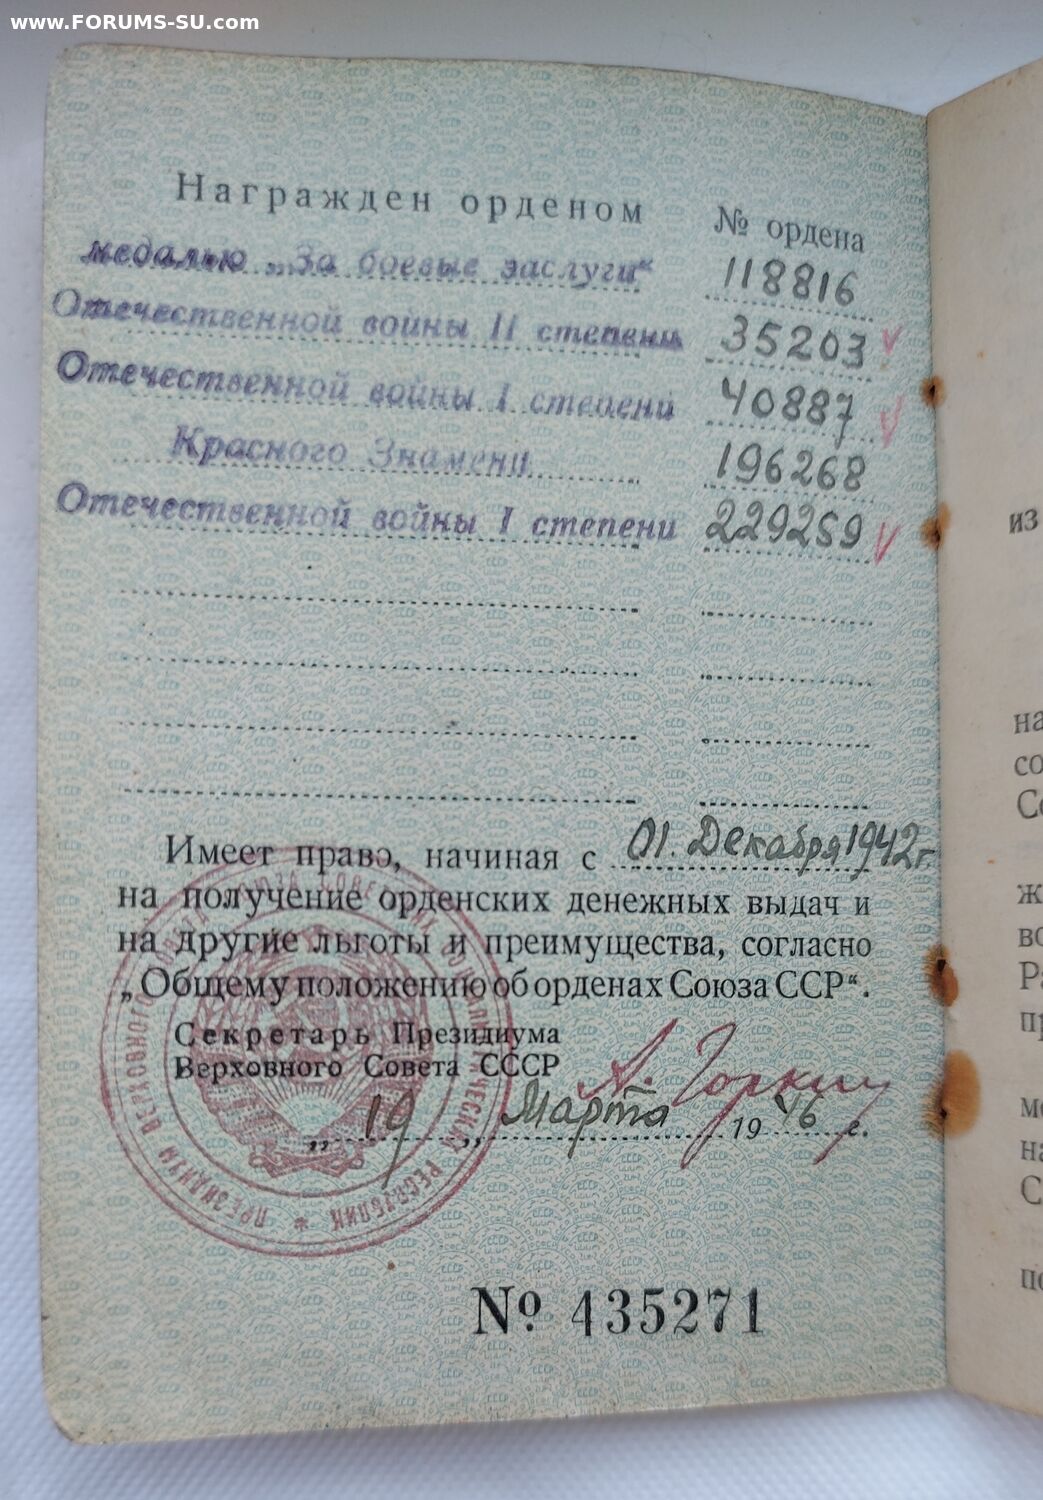 www.FORUMS-SU.com
Награжден орденом № ордена
медалью „За боевые заслуги“ 118816
Отечественной войны II степени 35203
Отечественной войны I степени 40887
Красного Знамени 196268
Отечественной войны I степени 229259
Имеет право, начиная с 01. Декабря 1942 г.
на получение орденских денежных выдач и
на другие льготы и преимущества, согласно
„Общему положению об орденах Союза ССР“.
Секретарь Президиума
Верховного Совета СССР
А. Горкин
„ 19 „ Марта 1946 г.
№ 435271
ПРЕЗИДИУМ ВЕРХОВНОГО СОВЕТА СОЮЗА СОВЕТСКИХ СОЦИАЛИСТИЧЕСКИХ РЕСПУБЛИК
из
на
со